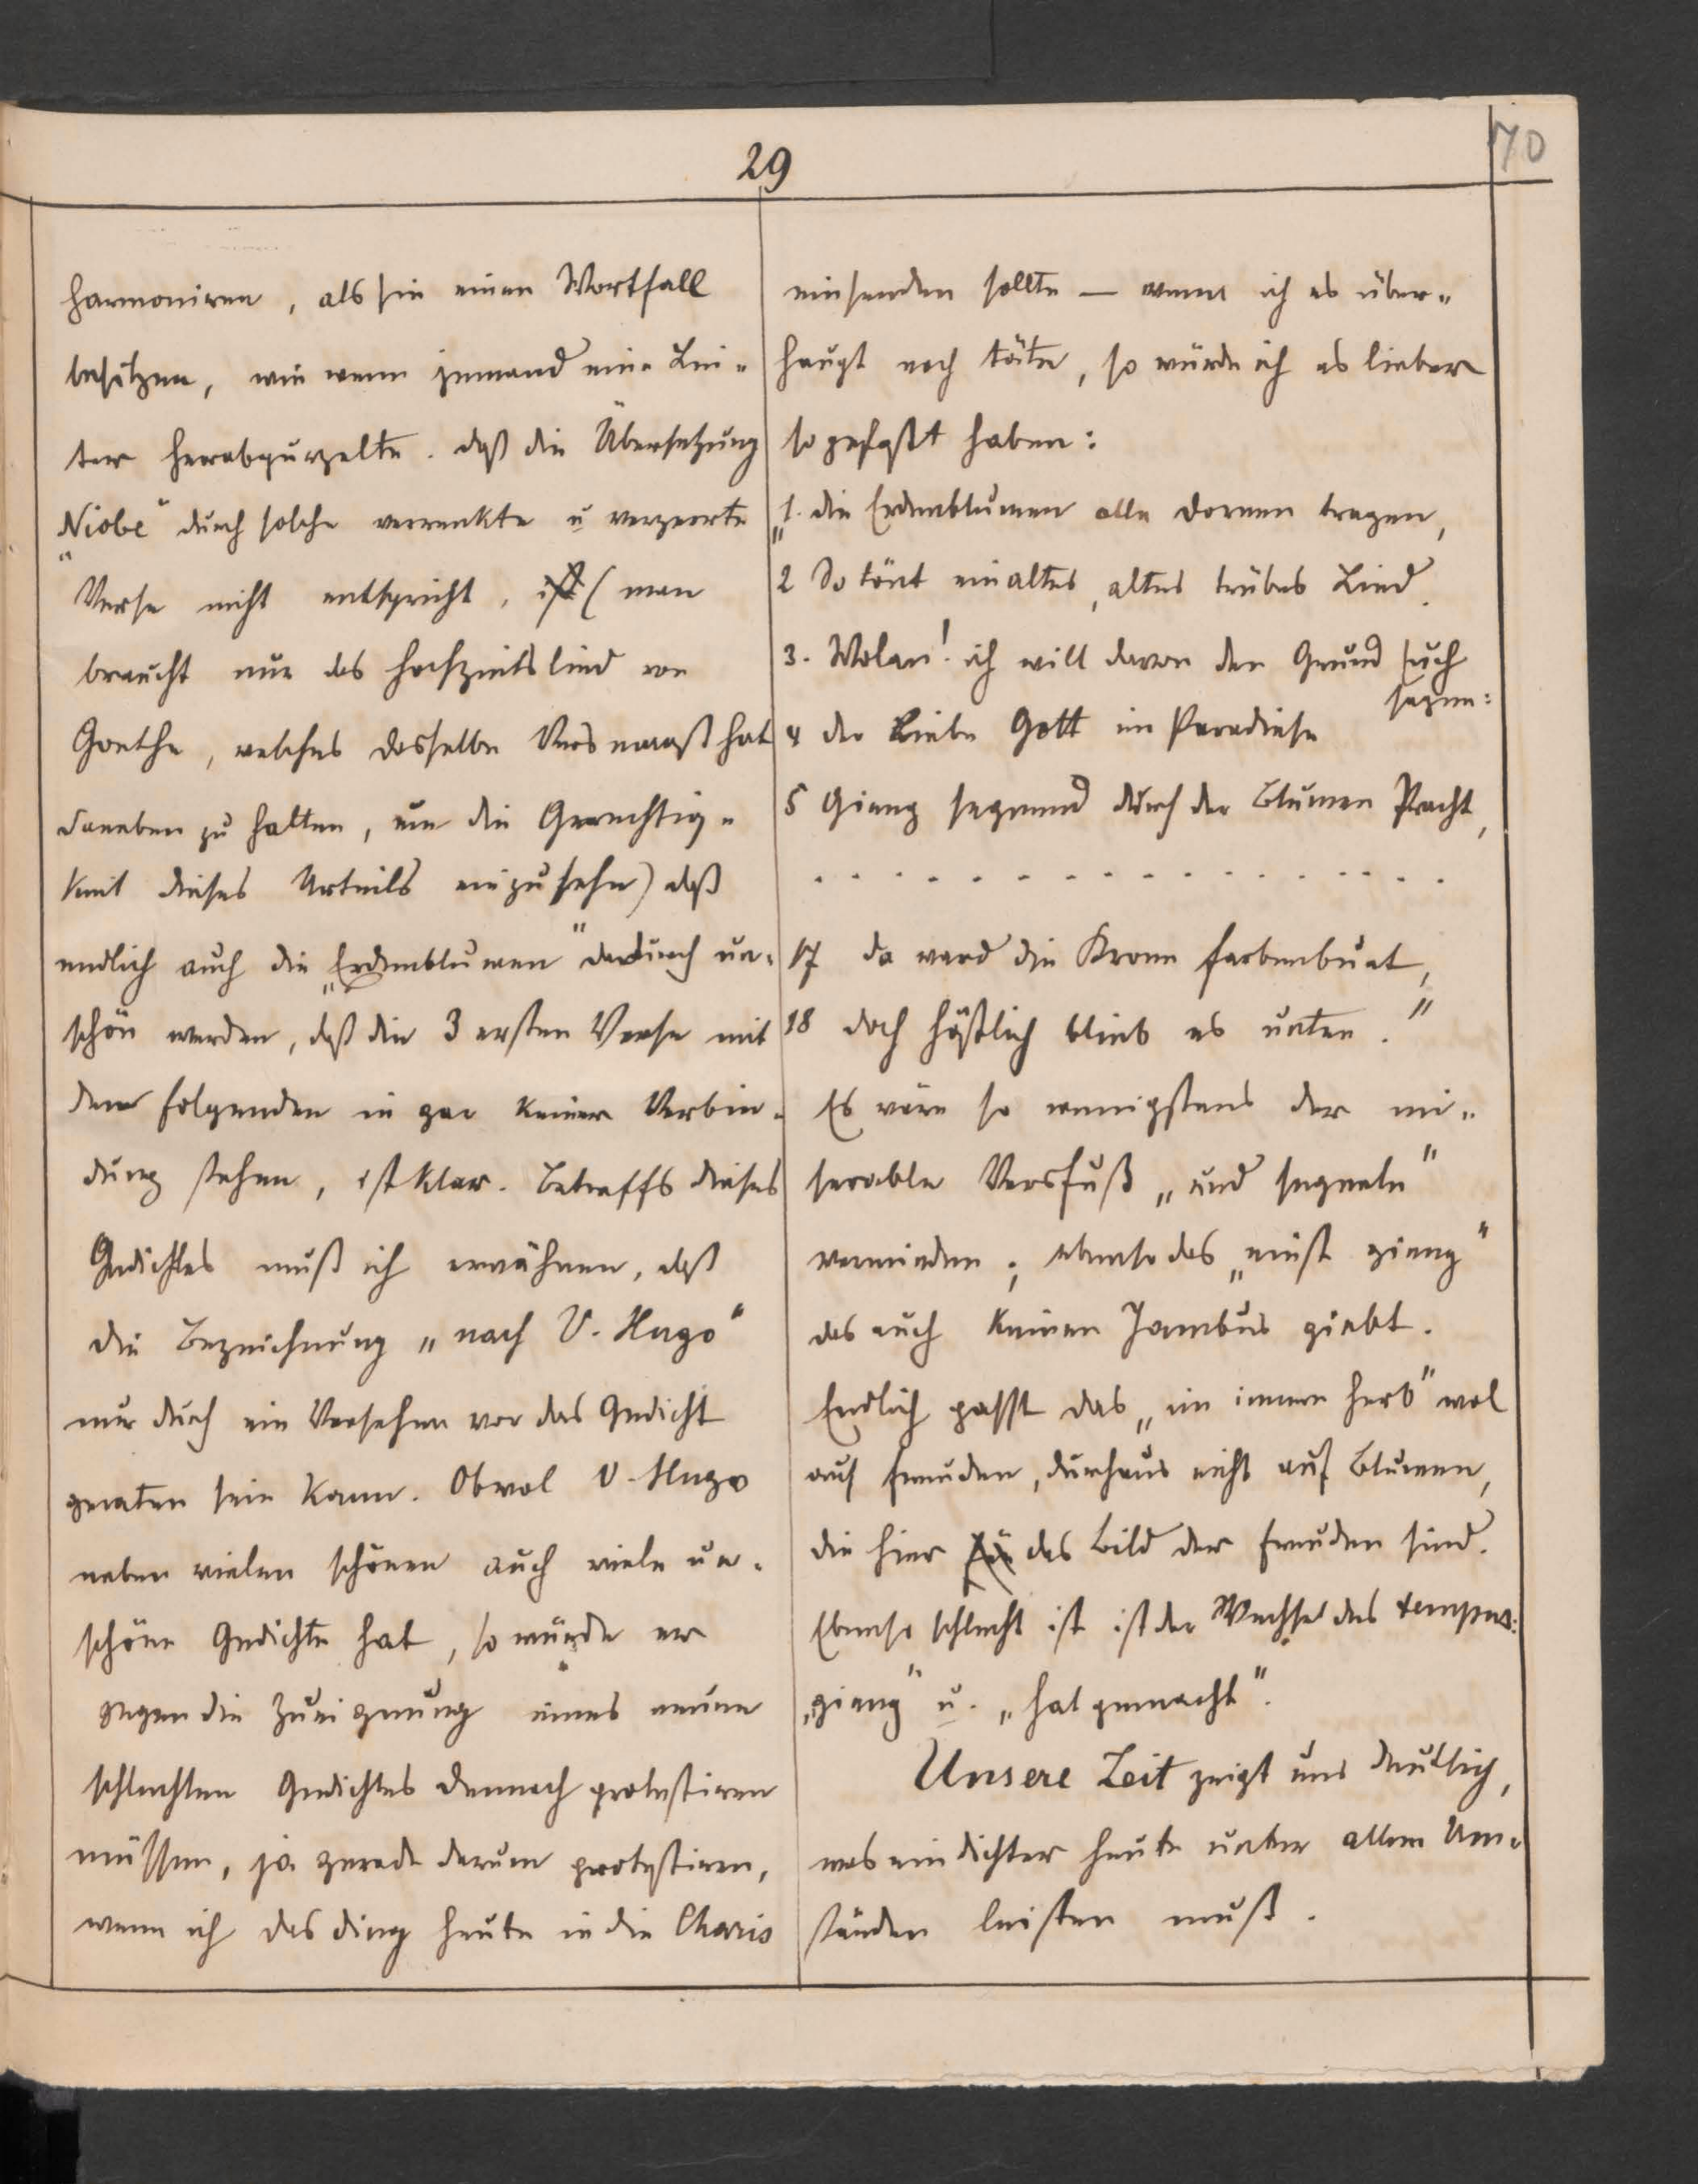 29
70
harmoniren, als sie einen Wortfall
besitzen, wie wenn jemand eine Lei-
ter herabpurzelte. daß die Übersetzung
„Niobe" durch solche verrenkte u verzerrte
Verse nicht entspricht, ist (man
braucht nur das Hochzeitslied von
Goethe, welches dasselbe Versmaaß hat
daneben zu halten, um die Gerechtig-
keit dieses Urteils einzusehn) daß
endlich auch die „Erdenblumen" dadurch un-
schön werden, daß die 3 ersten Verse mit
dem folgenden in gar keiner Verbin-
dung stehen, ist klar. Betreffs dieses
Gedichtes muß ich erwähnen, daß
die Bezeichnung „nach V. Hugo"
nur durch ein Versehen vor das Gedicht
geraten sein kann. Obwol V. Hugo
neben vielen schönen auch viele un-
schöne Gedichte hat, so würde er
gegen die Zueignung eines neuen
schlechten Gedichtes dennoch protestiren
müssen, ja gerade darum protestiren,
wenn ich das ding heute in die Charis
einsenden sollte — wenn ich es über-
haupt noch täte, so würde ich es lieber
so gefaßt haben:
„1. die Erdenblumen alle dornen tragen,
2 So tönt ein altes, altes trübes Lied.
3. Wolan! ich will davon den Grund Euch
sagen:
4 der Liebe Gott im Paradiese
5 Gieng segnend durch der Blumen Pracht,
. . . . . . . . . . . . . . . . . .
17 da ward die Krone farbenbunt,
18 doch häßlich blieb es unten."
Es wäre so wenigstens der mi-
serable Versfuß „und segnete"
vermieden; ebenso das „einst gieng"
das auch keinen Jambus giebt.
Endlich passt das „im innern herb" wol
auf freuden, durchaus nicht auf Blumen,
die hier das Bild der freuden sind.
Ebenso schlecht ist ist der Wechsel des tempus:
„gieng" u. „hat gemacht".
Unsere Zeit zeigt uns deutlich,
was ein dichter heute unter allen Um-
ständen leisten muß.